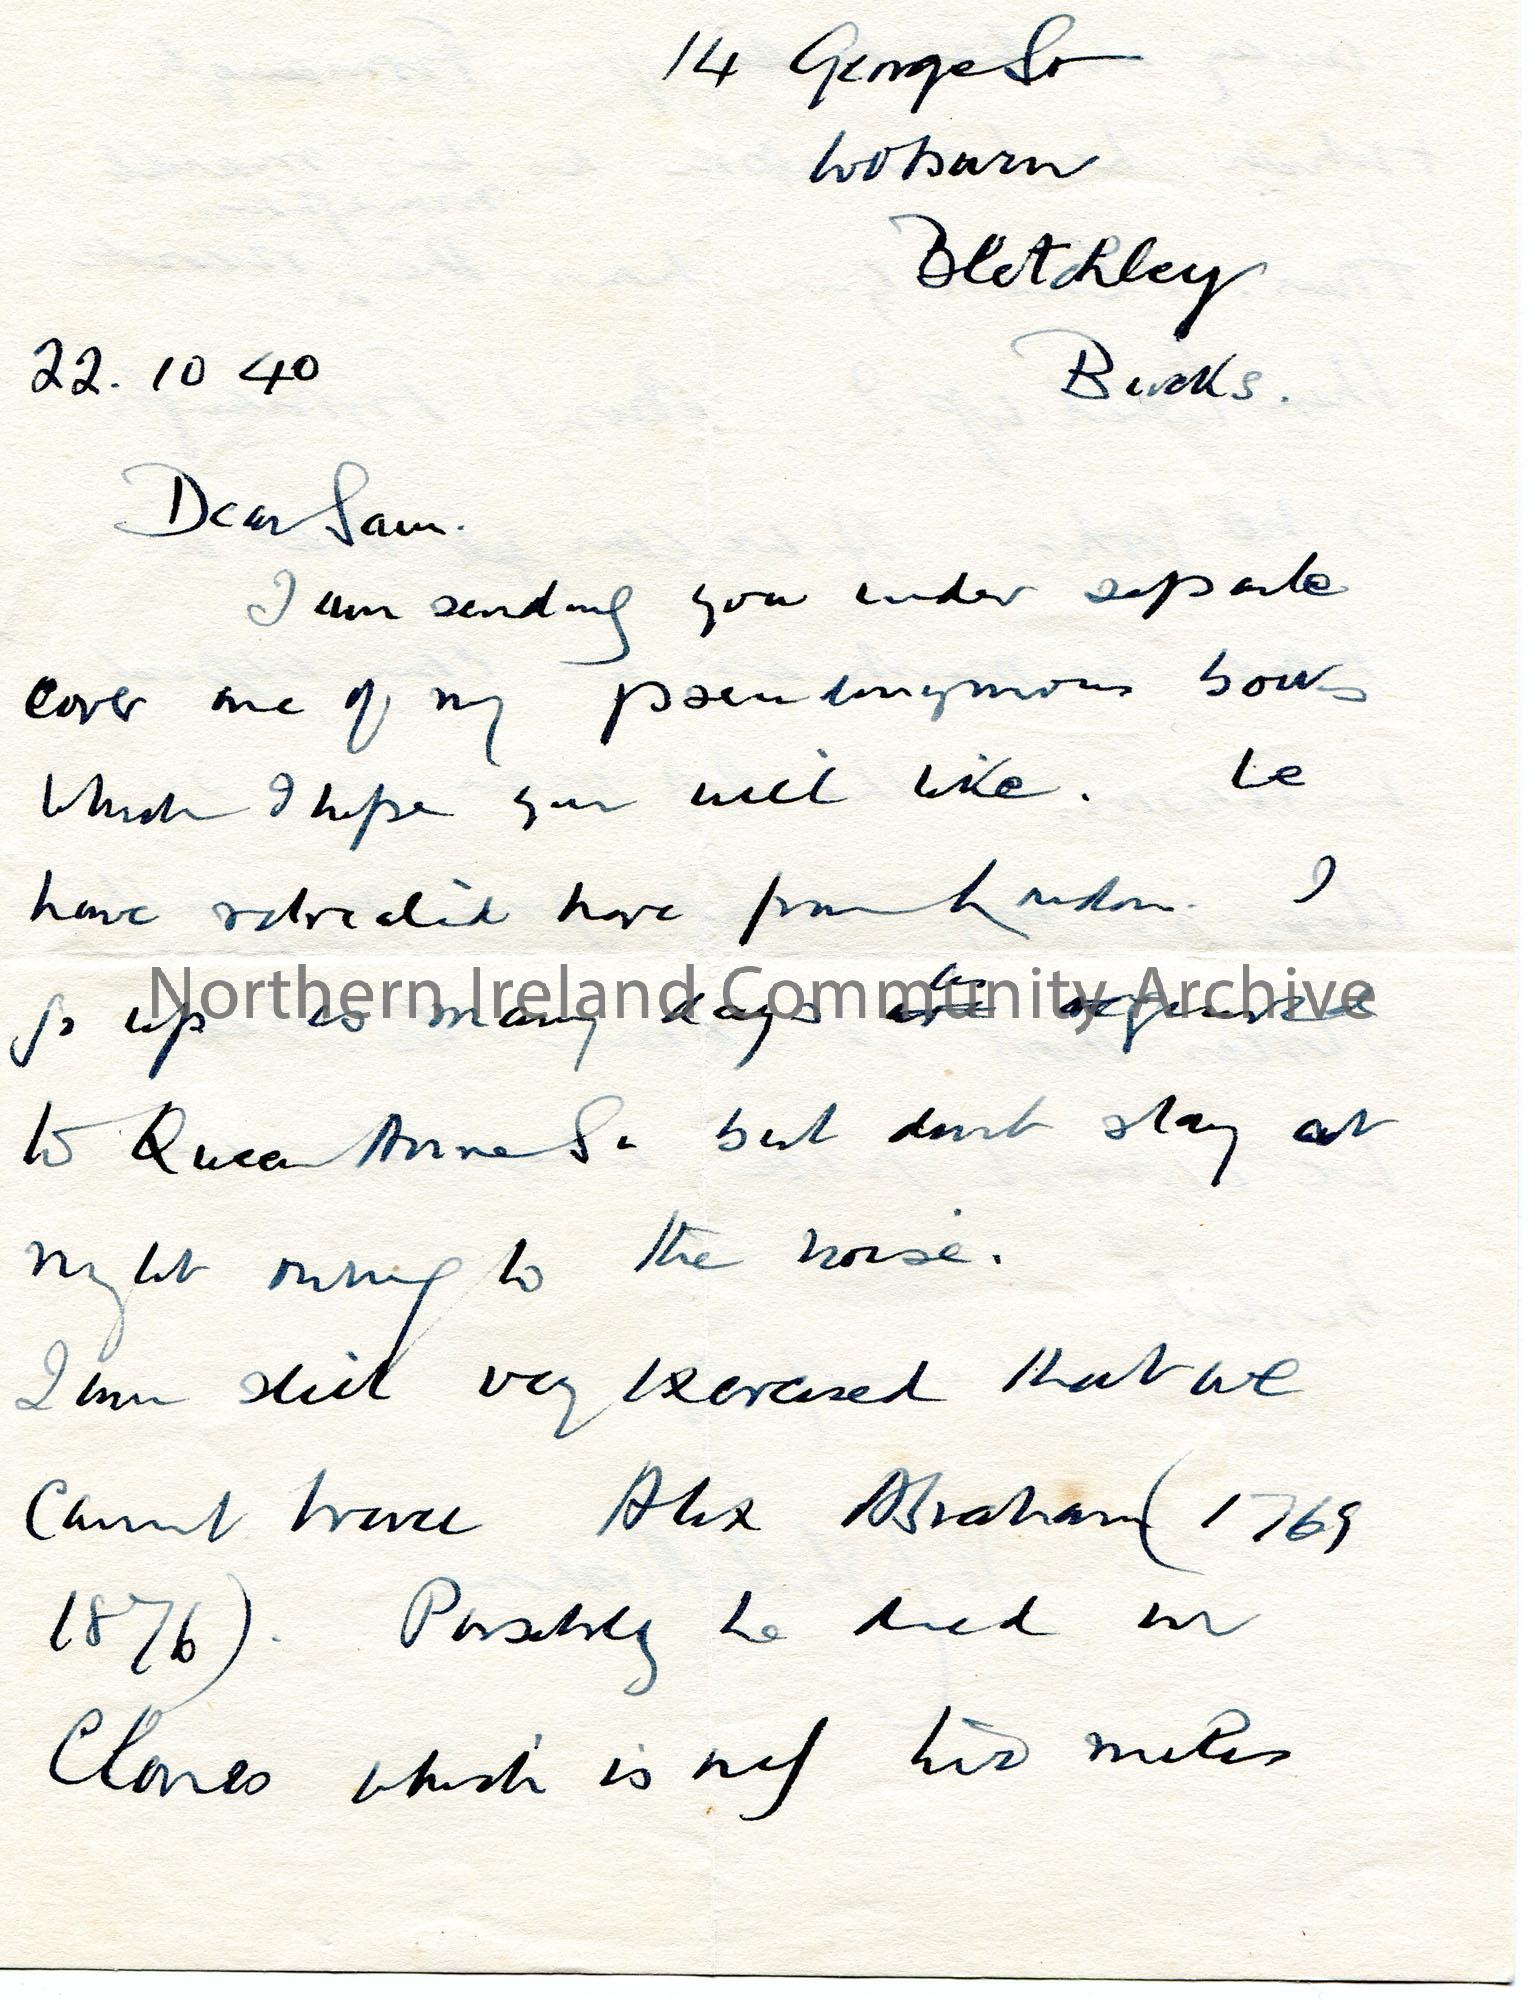 14 George St
Woburn
Bletchley
Bucks.
22. 10 40
Dear Sam.
I am sending you under separate
cover one of my pseudonymous books
which I hope you will like. We
have retreated here from London. I
go up as many days as required
to Queen Anne St but dont stay at
night owing to the noise.
I am still very exercised that we
cannot trace Alex Abraham (1769
1876). Possibly he died in
Clones which is only two miles
Northern Ireland Community Archive